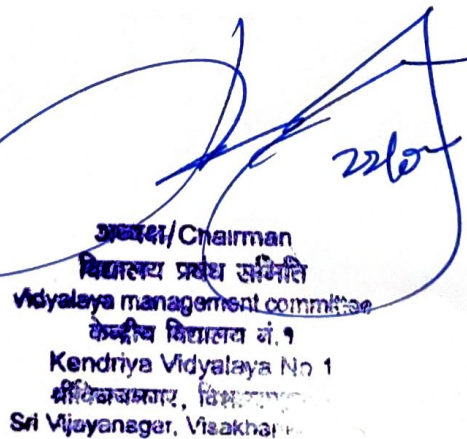 अध्यक्ष/Chairman
विद्यालय प्रबंध समिति
vidyalaya management committee
केन्द्रीय विद्यालय नं.१
Kendriya Vidyalaya No 1
श्रीविजयनगर,
Sri Vijayanagar,